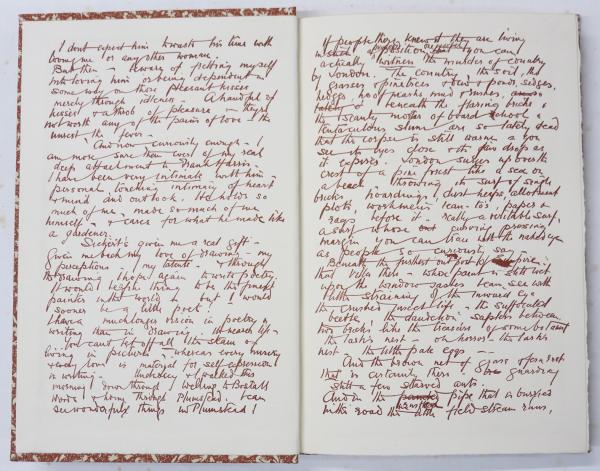 I dont expect him to waste his time with
loving me or any other woman.
But then - beware of letting myself
into loving him or being dependent in
some way on those pleasant kisses
merely through idleness. A handful of
kisses & a touch of pleasure - theyre
not worth any of the pains of love - the
unrest the fever -
And now - curiously enough - I
am more sure than ever of my real
deep attachment to
have been very intimate with him -
personal, touching intimacy of heart
& mind and outlook. He
much of me, made so much of me
himself & cares for what he made like
a gardener.
Sickert's given me a real gift -
Given me back my love of drawing, my
perceptions - my talents - & through
the drawing I hope again to write poetry.
It would be a fine thing to be the finest
painter in the world - but I would
sooner be a little poet!
I have a much longer vision in poetry &
writing than in drawing. It reaches life -
You cant let off all the steam of
living in pictures - whereas every misery
& every love is material for self expression
in writing. & I walked this
morning down through Welling to Bostall
Woods & home through Plumstead. I can
see wonderful things in Plumstead!
If people there knew that they are living
in such a position you can
actually witness the murder of country
by London. The country - the soil, the
grasses & pinetrees & & ponds, sedges,
hedges hoof marks mud & rushes,
beneath the flaring bricks &
the Beauty mother of board school &
tentaculous slums are so lately dead
that the corpse is still warm & you
see its eyes close & the few drops as
it expires. London surges up over the
crest of a pine forest like a sea on
a beach throwing its surf of single
bricks hoardings, dust heaps, allotment
plots workmen's lean-to's paper &
rags before it - really a veritable surf,
a surf whose curving pressing
margin you can trace with the naked eye
as people so curiously say
Beneath the furthest out post of
that villa there - whose paint is still wet
upon the window sashes I can see with
little straining of the inward eye
the crushed insect life, the suffocated
beetle the dandelion sapless between
two bricks like the treasure of some
the larks nest - oh horror the larks
nest - the little pale eggs -
And the brown net of grass often
that is certainly there guarding
still a few starved ants.
And in the pipe that is buried
in the road the little field stream runs,